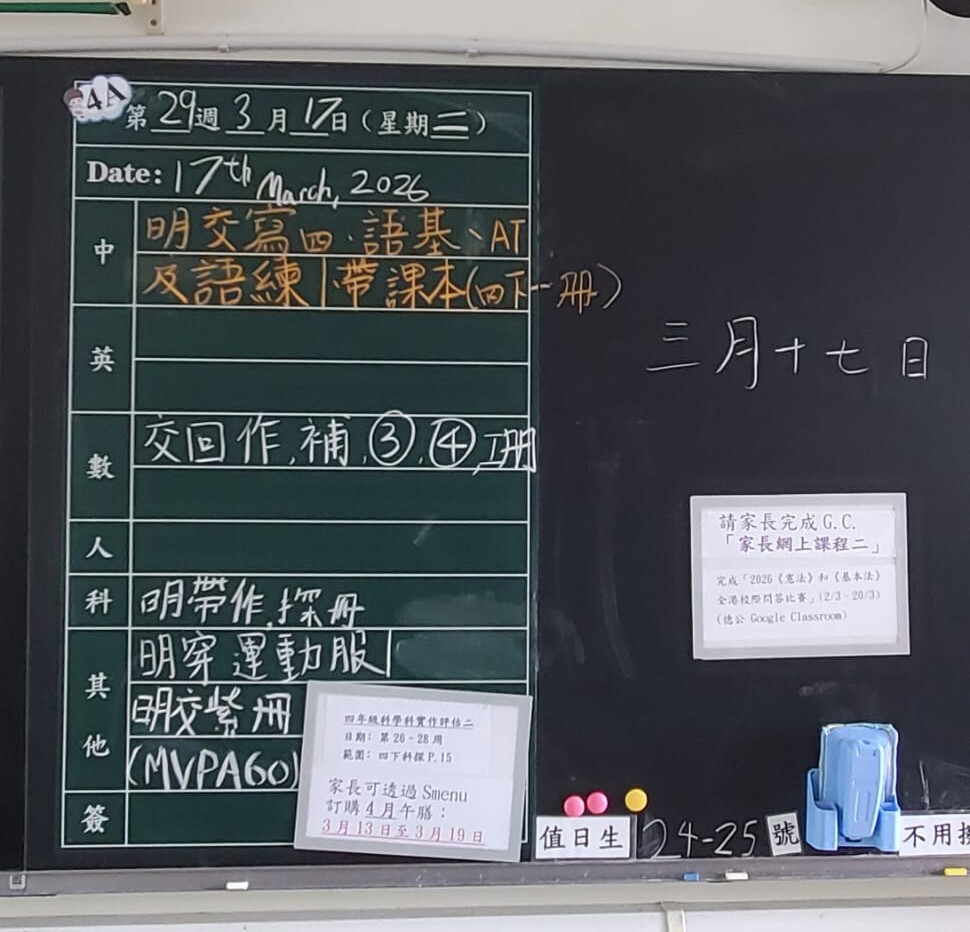 4A
第29週3月17日(星期二)
Date: 17th March, 2026
中
明交寫四、語基、AT
及語練|帶課本(四下一冊)
英
數
交回作,補,③,④,工冊
人
科
明帶作,探冊
其他
明穿運動服|
明交紫冊
(MVPA60)
簽
四年級科學科實作評估二
日期: 第26-28周
範圍: 四下科探P.15
家長可透過Smenu
訂購4月午膳:
3月13日至3月19日
三月十七日
請家長完成G.C.
「家長網上課程二」
完成「2026《憲法》和《基本法》
全港校際問答比賽」(2/3-20/3)
(德公 Google Classroom)
值日生 24-25 號
不用